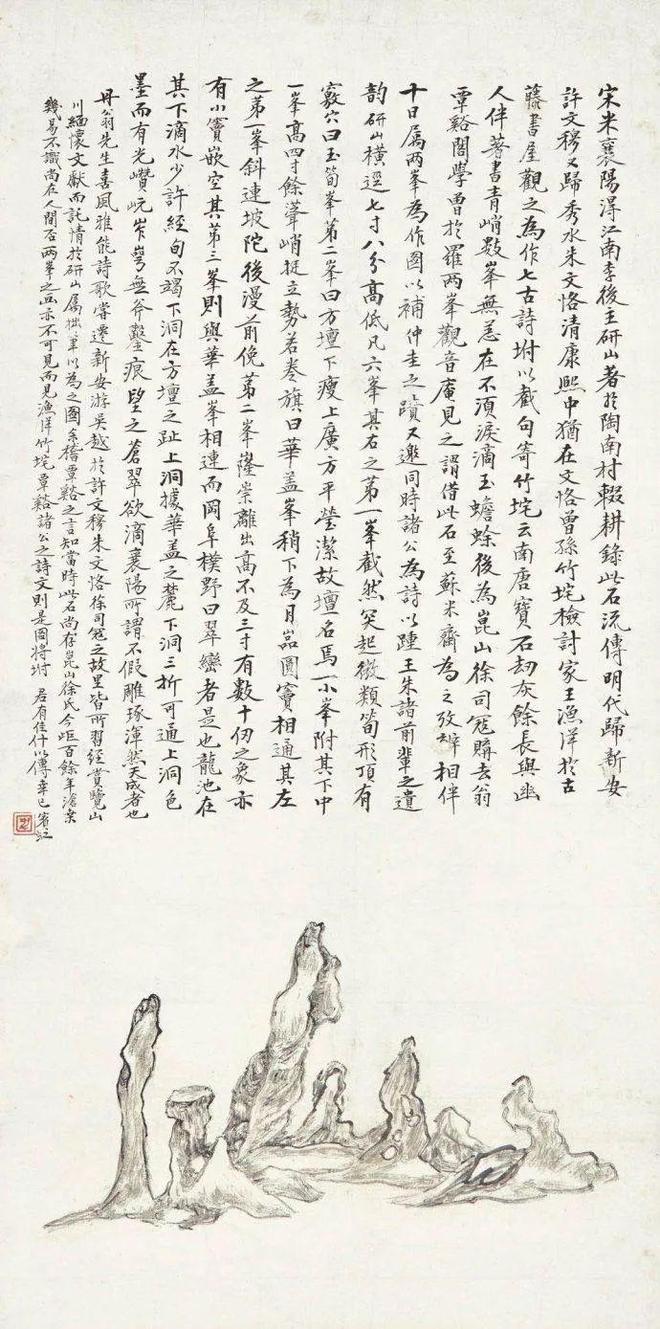 宋米襄陽得江南李後主研山著於陶南村輟耕錄此石流傳明代歸新安
許文穆又歸秀水朱文恪清康熙中猶在文恪曾孫竹垞檢討家王漁洋於古
藤書屋觀之為作七古詩坿以截句寄竹垞云南唐寶石劫灰餘長與幽
人伴著書青峭數峯無恙在不須淚滴玉蟾蜍後為崑山徐司寇購去翁
覃谿閣學曾於羅兩峯觀音庵見之謂借此石至蘇米齋為之攷辨相伴
十日屬兩峯為作圖以補仲圭之蹟又邀同時諸公為詩以踵王朱諸前輩之遺
韵研山橫逕七寸八分高低凡六峯其右之第一峯截然突起微類筍形頂有
竅穴曰玉筍峯第二峯曰方壇下瘦上廣方平瑩潔故壇名焉一小峯附其下中
一峯高四寸餘峭挺立勢若卷旗曰華盖峯稍下為月嵓圓竇相通其左
之第一峯斜連坡陀後漫前俛第二峯崇離出高不及三寸有數十仞之象亦
有小竇嵌空其第三峯則與華盖峯相連而岡阜樸野曰翠巒者是也龍池在
其下滴水少許經旬不竭下洞在方壇之趾上洞據華盖之麓下洞三折可通上洞色
墨而有光巑岏岝崿無斧鑿痕望之蒼翠欲滴襄陽所謂不假雕琢渾然天成者也
丹翁先生喜風雅能詩歌嘗遷新安游吳越於許文穆朱文恪徐司寇之故里皆所習經賞覽山
川緬懷文獻而託情於研山屬拙筆以為之圖余稽覃谿之言知當時此石尚存崑山徐氏今距百餘年滄桑
幾易不識尚在人間否兩峯之畫亦不可見而見漁洋竹垞覃谿諸公之詩文則是圖將坿 君有佳什以傳辛巳賓虹